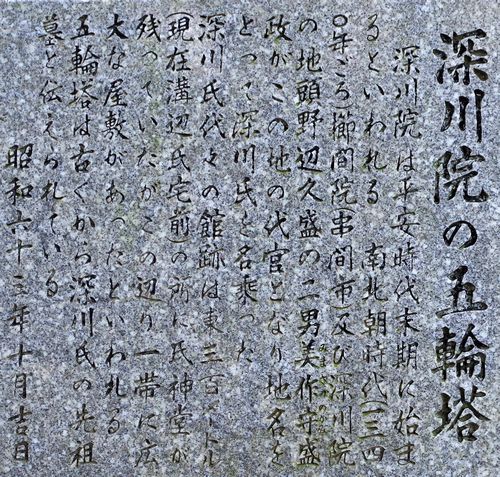 深川院の五輪塔
深川院は平安時代末期に始ま
るといわれる 南北朝時代(一三四
〇年ごろ)櫛間院(串間市及び深川院
の地頭野辺久盛の二男美作守盛
政がこの地の代官となり地名を
とって深川氏と名乗った
深川氏代々の館跡は東三百メートル
(現在溝辺氏宅前)の所に氏神堂が
残っていたがこの辺り一帯に広
大な屋敷があったといわれる
五輪塔は古くから深川氏の先祖
墓と伝えられている
昭和六十三年十月吉日